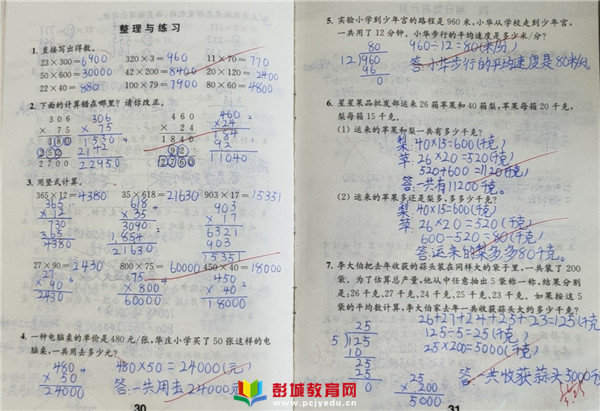 整理与练习
1. 直接写出得数。
23×300=6900 320×3=960 11×70=770
50×600=30000 42×200=8400 20×120=2400
22×40=880 100×79=7900 80×60=4800
2. 下面的计算错在哪里？请你改正。
306
×75
180
252
2700
306
×75
1530
2142
22950
460
×24
1840
92
2760
460
×24
184
92
11040
3. 用竖式计算。
365×12=4380 35×618=21630 903×17=15351
365
×12
730
365
4380
618
×35
3090
1854
21630
903
×17
6321
903
15351
27×90=2430 800×75=60000 450×40=18000
27
×90
2430
×800
60000
450
×40
18000
4. 一种电脑桌的单价是480元/张，华庄小学买了50张这样的电
脑桌，一共用去多少元？
480
×50
24000
480×50=24000(元)
答:一共用去24000元
30
5. 实验小学到少年宫的路程是960米，小华从学校走到少年宫，
一共用了12分钟。小华步行的平均速度是多少米/分？
80
12 960
96
0
960÷12=80(米/分)
答:小华步行的平均速度是80米/分。
6. 星星果品批发部运来26箱苹果和40箱梨，苹果每箱20千克，
梨每箱15千克。
(1) 运来的苹果和梨一共有多少千克？
梨:40×15=600(千克)
苹:26×20=520(千克)
520+600=1120(千克)
答:一共有11200千克。
(2) 运来的苹果多还是梨多，多多少千克？
梨:40×15=600(千克)
苹:26×20=520(千克)
600-520=80(千克)
答:运来的梨多,多80千克。
7. 李大伯把去年收获的蒜头装在同样大的袋子里，一共装了200
袋。为了估算总产量，他从中任意抽出5袋称一称，结果分别
是：26千克、27千克、24千克、25千克、23千克。如果按这5
袋的平均数计算，李大伯家去年一共收获蒜头大约多少千克？
26+27+24+25+23=125(千克)
125÷5=25(千克)
25×200=5000(千克)
答:一共收获蒜头5000千克
25
5 125
10
25
25
0
25
×200
5000
31
彭城教育网
www.pcjyedu.cn